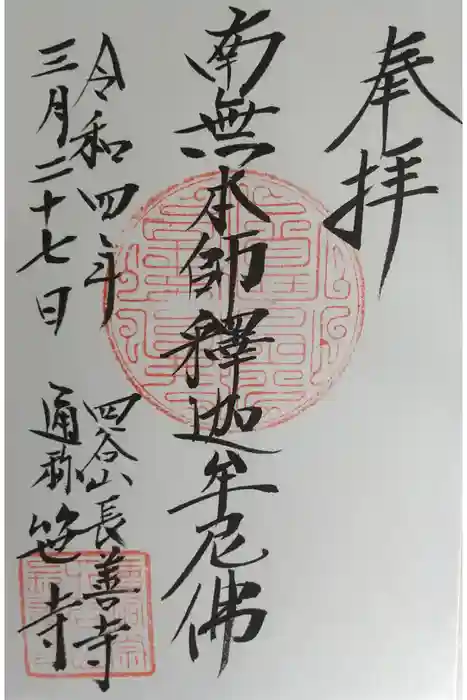 奉拝
南無本師釋迦牟尼佛
令和四年
三月二十七日
四谷山長善寺
通称笹寺